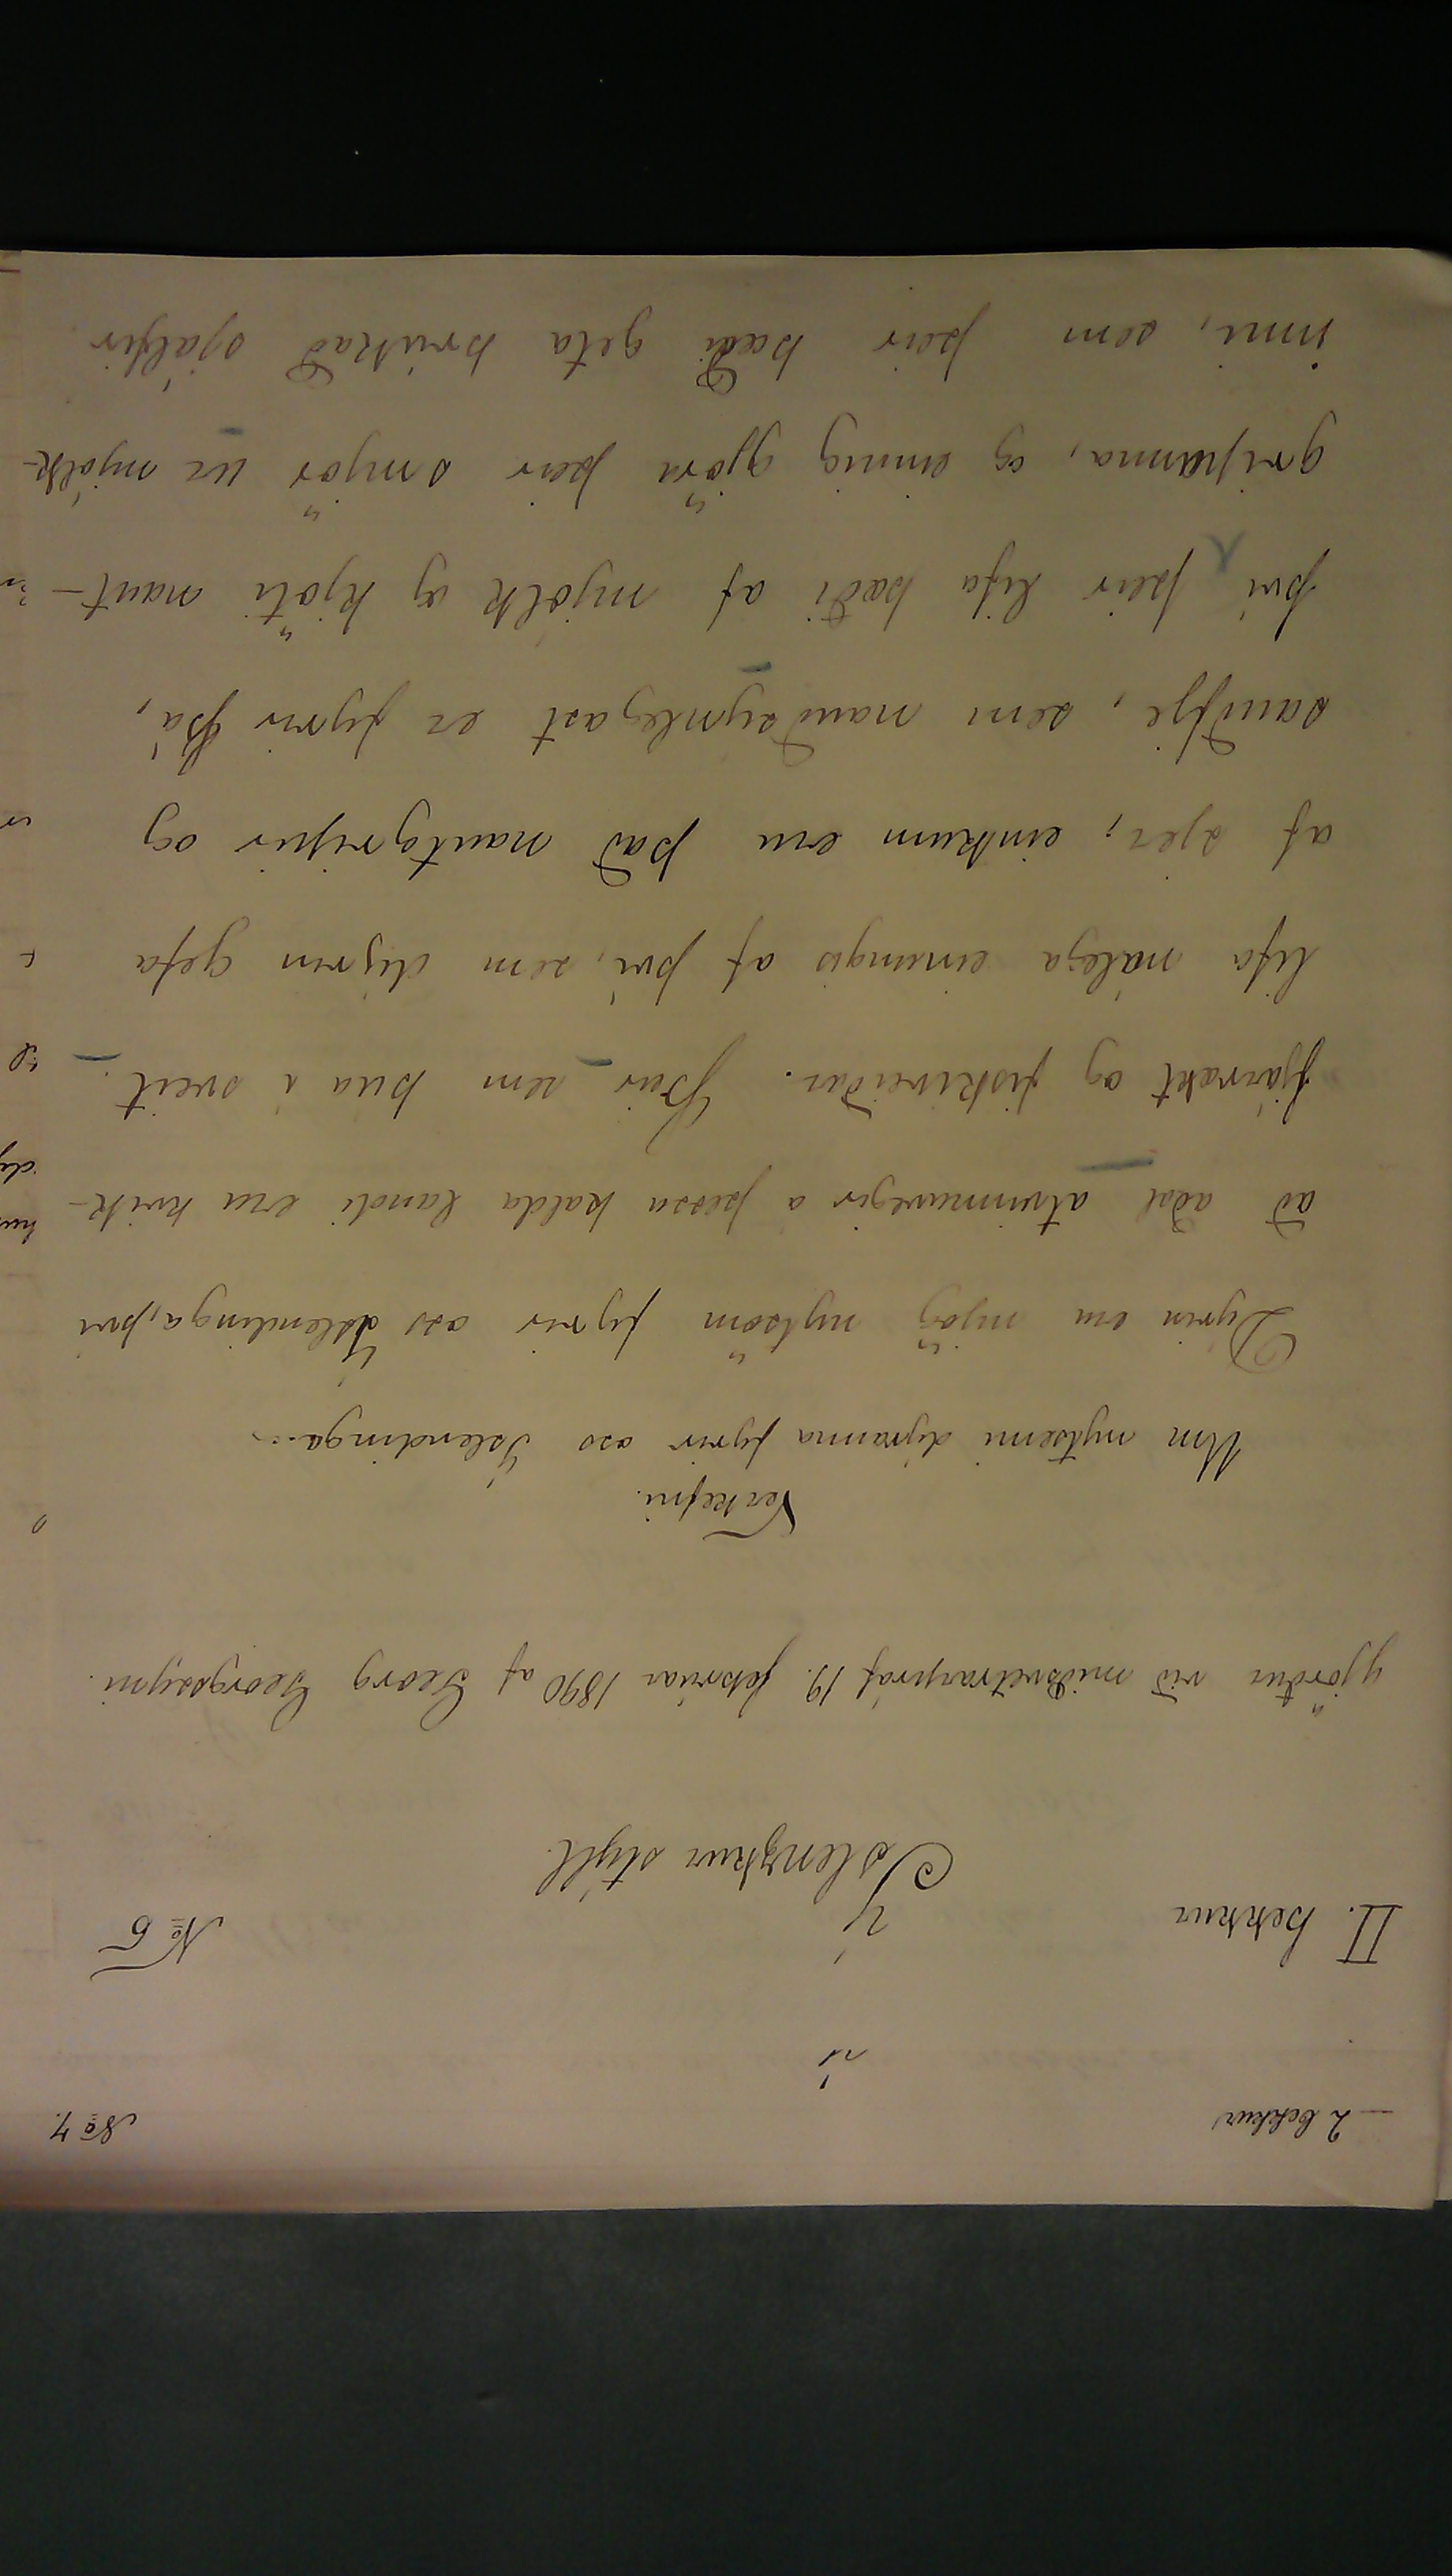 2 bekkur
No 7.
í
II. bekkur
No 6
Íslenzkur stýll
gjörður við miðsvetrarpróf 19. febrúar 1890 af Georg Georgssyni.
Verkefni.
Um nytsemi dýranna fyrir oss Íslendinga.
Dýrin eru mjög nytsöm fyrir oss Íslendinga, því
að aðal atvinnuvegir á þessu kalda landi eru kvik-
fjárrækt og fiskiveiðar. Þeir sem búa í sveit
lifa nálega einungis af því, sem dýrin gefa
af sjer; einkum eru það nautgripir og
sauðfje, sem nauðsynlegast er fyrir þá,
því þeir lifa bæði af mjólk og kjöti naut-
gripanna, og einnig gjöra þeir smjör úr mjólk-
inni, sem þeir bæði geta brúkað sjálfir